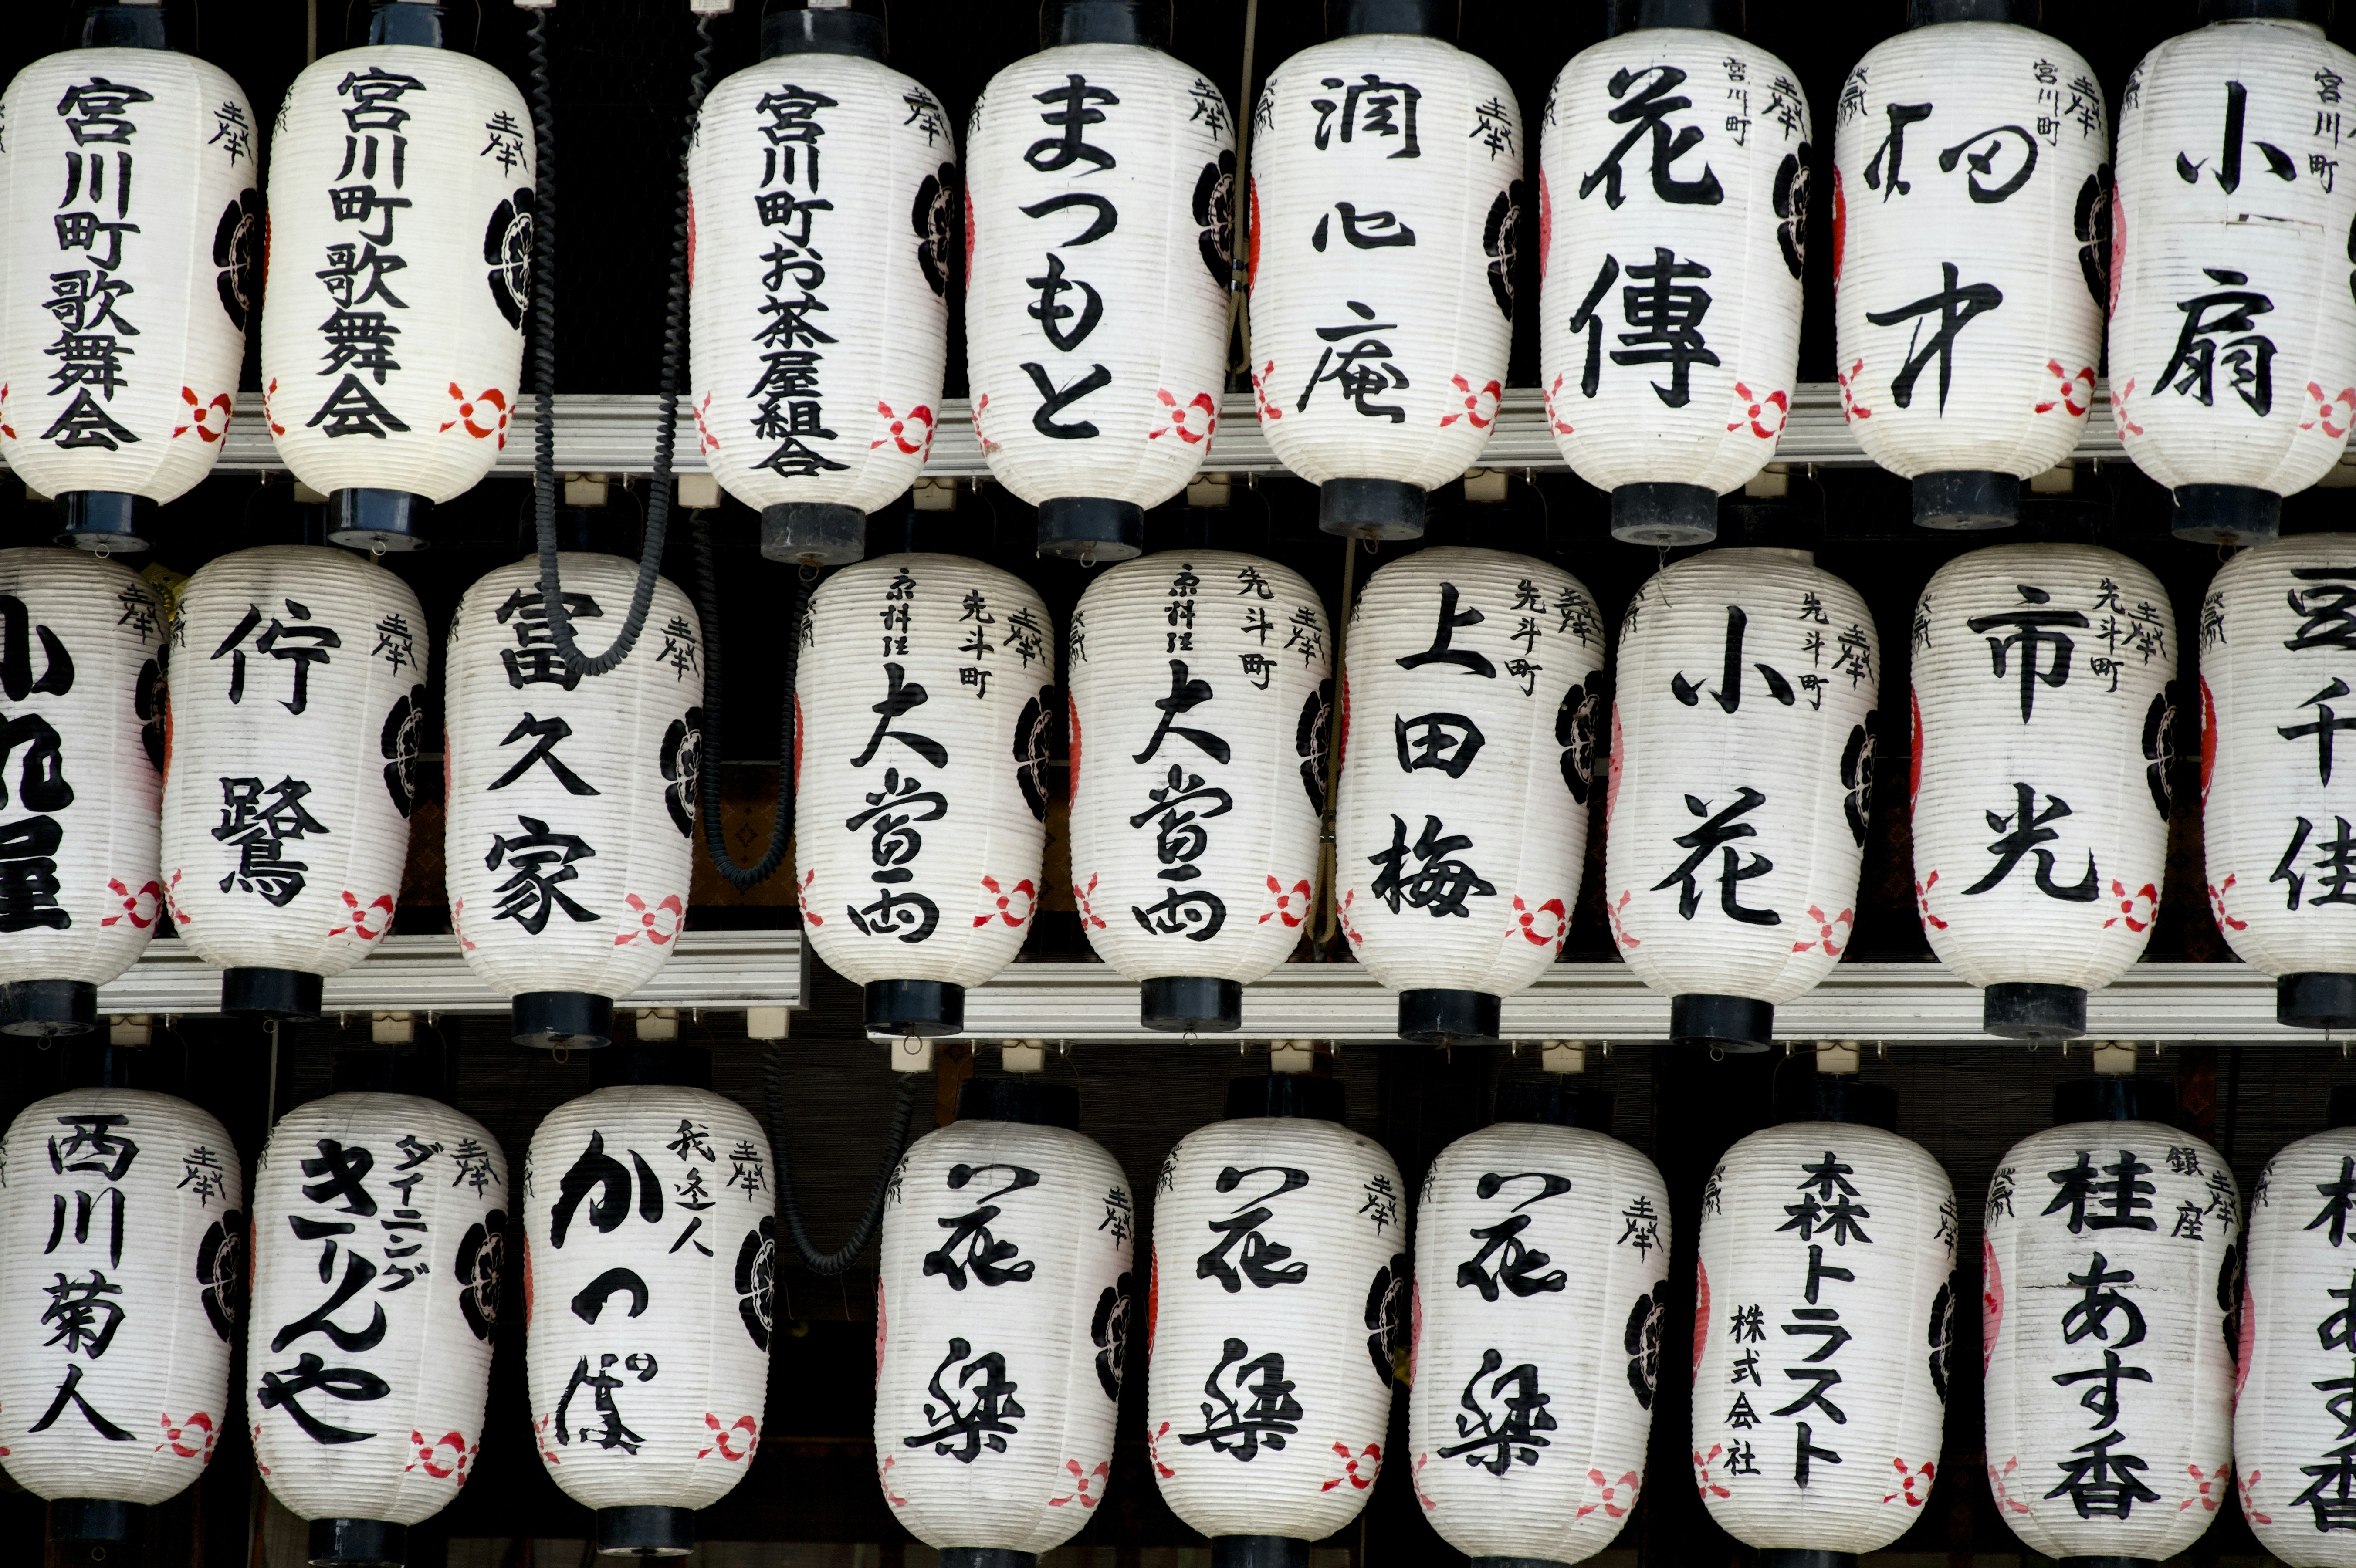 宮川町歌舞会
奉
宮川町歌舞会
奉
宮川町お茶屋組合
奉
まつもと
奉
潤心庵
奉
宮川町
花傳
奉
宮川町
奉
宮川町
小扇
奉
佇鷺
奉
富久家
奉
先斗町
京料理
大當両
奉
先斗町
京料理
大當両
奉
先斗町
上田梅
奉
先斗町
小花
奉
先斗町
市光
豆千佳
奉
西川菊人
奉
ダイニング
きりんや
奉
我逢人
かつぽ
奉
花梁
奉
花梁
奉
花梁
奉
森トラスト
株式会社
奉
銀座
桂あす香